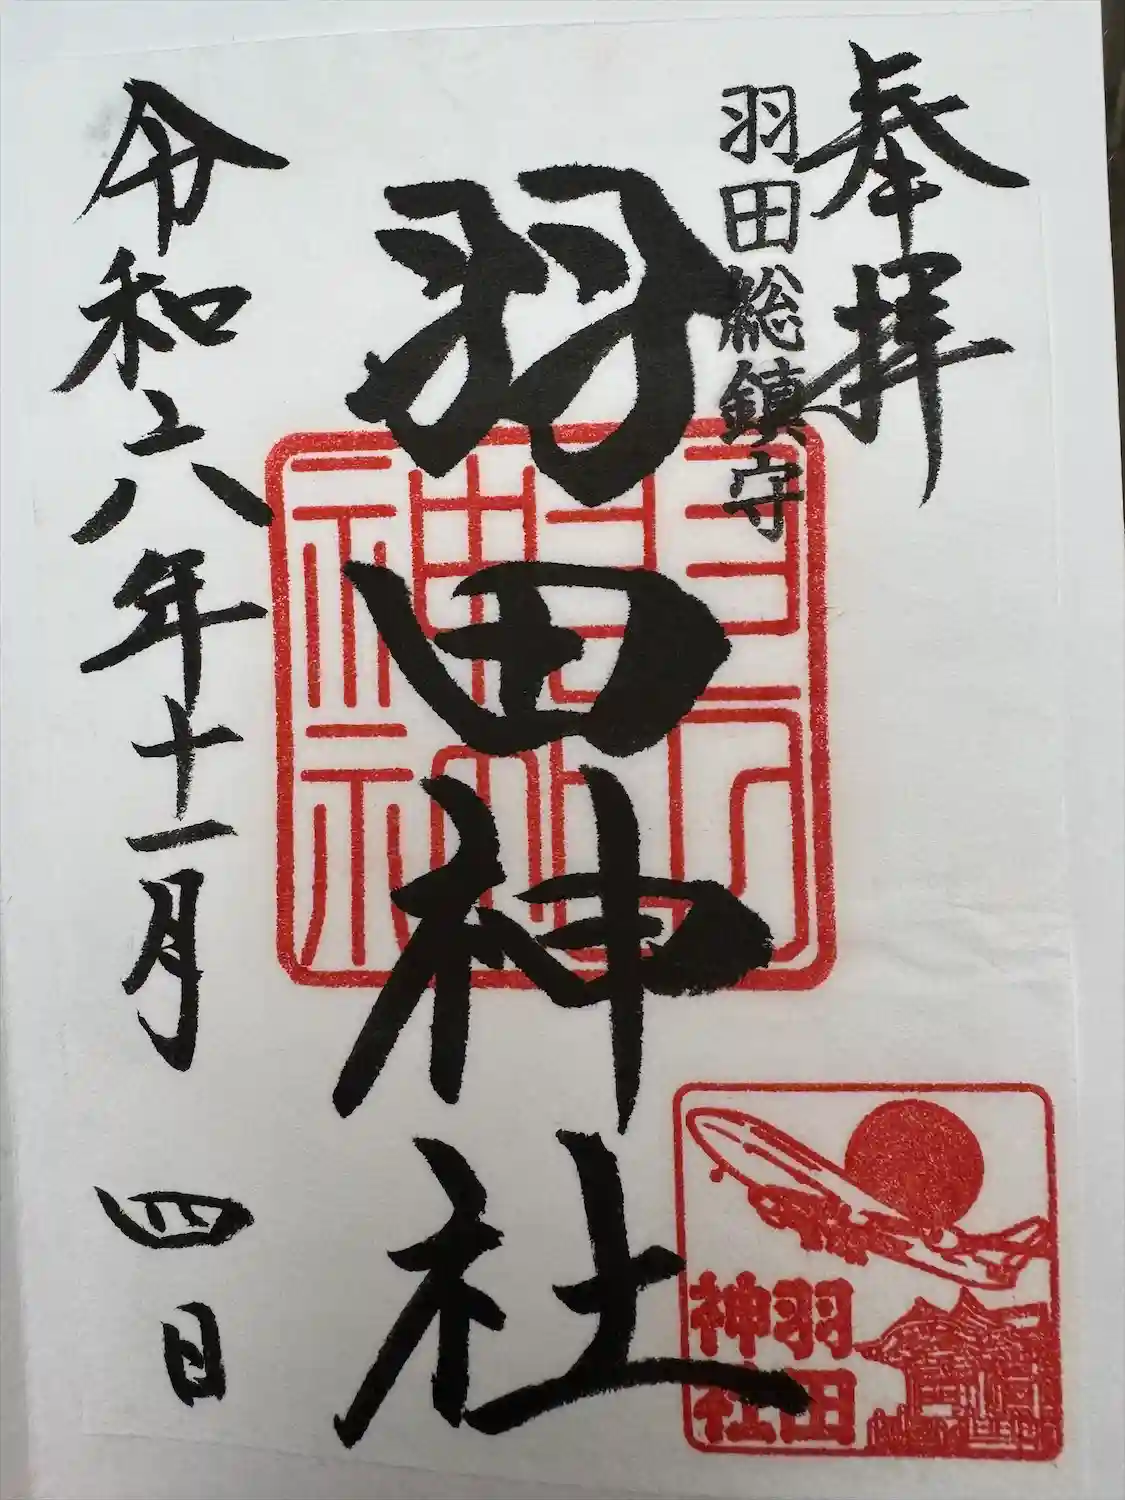 奉拝
羽田総鎮守
羽田神社
令和六年十一月四日
羽田
神社